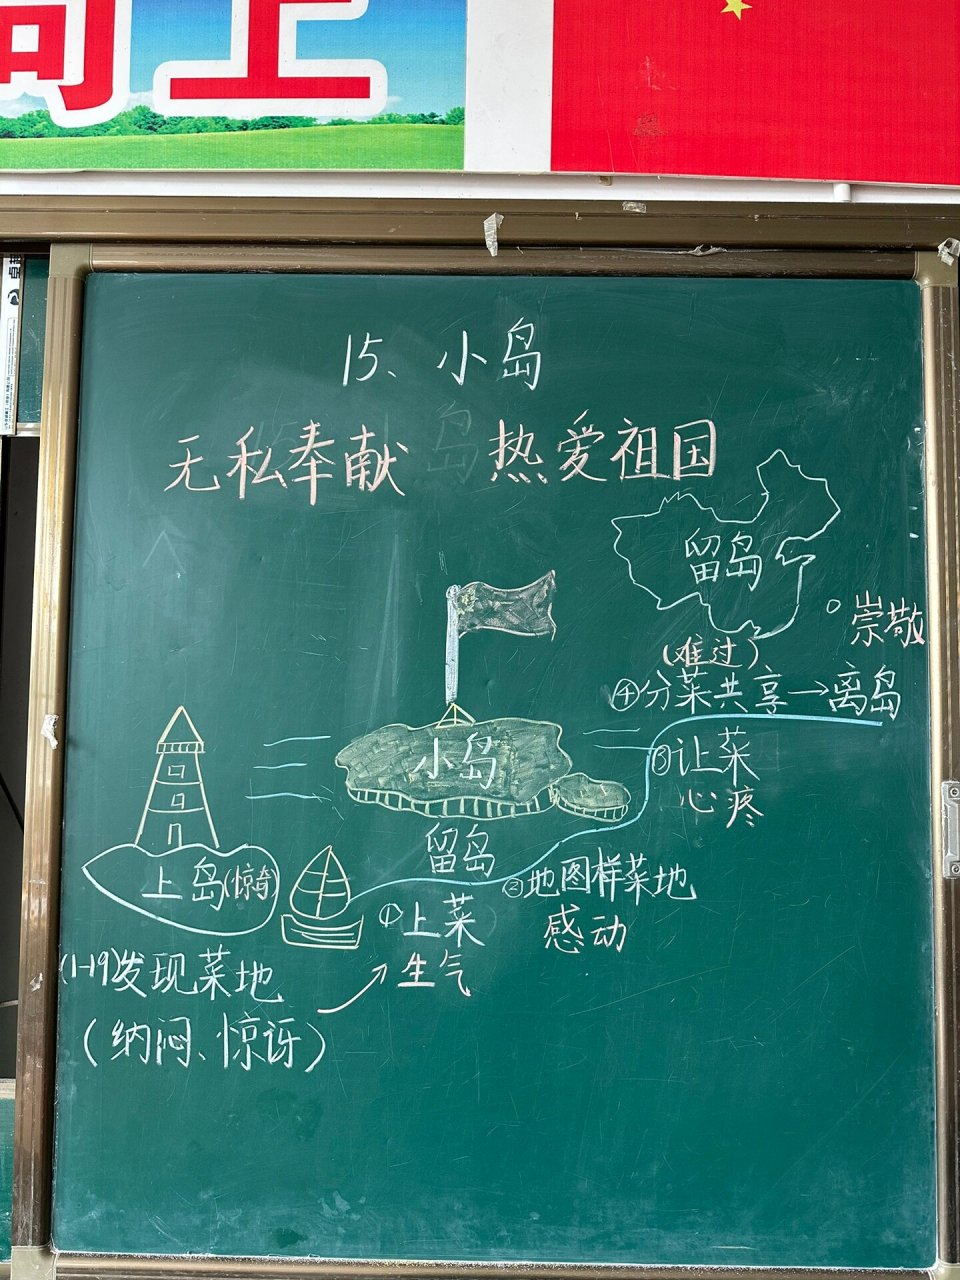 向上
15、小岛
无私奉献 热爱祖国
留岛
崇敬
(难过)
④分菜共享→离岛
③让菜
心疼
小岛
留岛
②地图样菜地
感动
①上菜
生气
上岛(惊奇)
(1-19)发现菜地
(纳闷、惊讶)